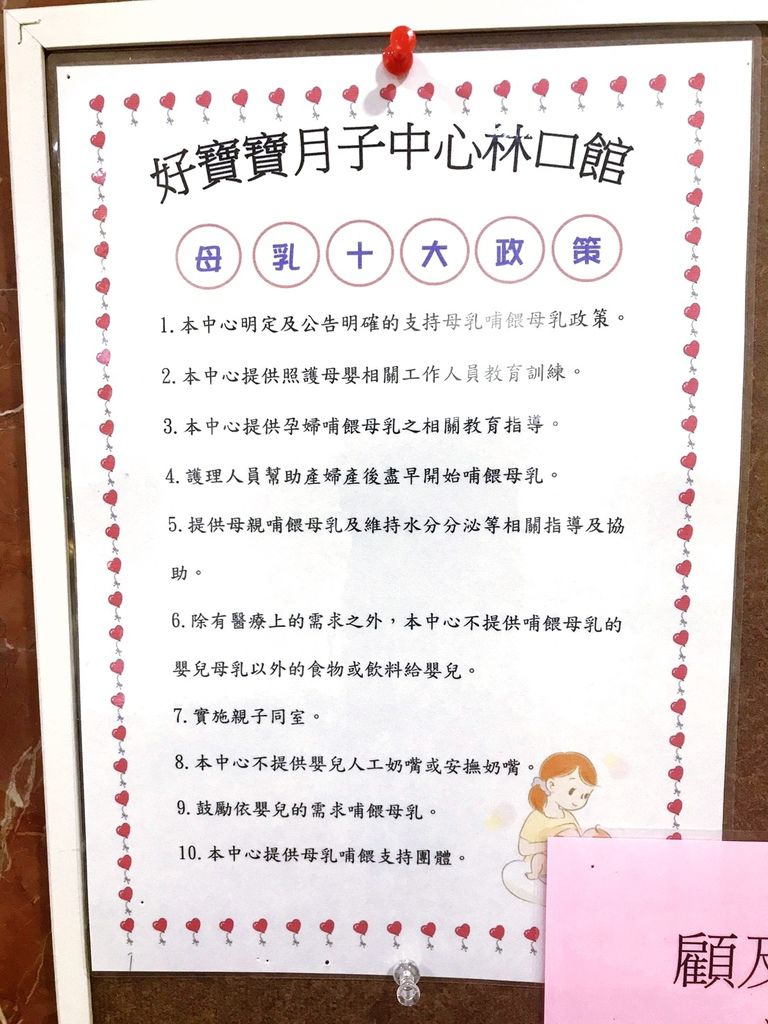 好寶寶月子中心林口館
母乳十大政策
1.本中心明定及公告明確的支持母乳哺餵母乳政策。
2.本中心提供照護母嬰相關工作人員教育訓練。
3.本中心提供孕婦哺餵母乳之相關教育指導。
4.護理人員幫助產婦產後盡早開始哺餵母乳。
5.提供母親哺餵母乳及維持水分分泌等相關指導及協
助。
6.除有醫療上的需求之外，本中心不提供哺餵母乳的
嬰兒母乳以外的食物或飲料給嬰兒。
7.實施親子同室。
8.本中心不提供嬰兒人工奶嘴或安撫奶嘴。
9.鼓勵依嬰兒的需求哺餵母乳。
10.本中心提供母乳哺餵支持團體。
顧及